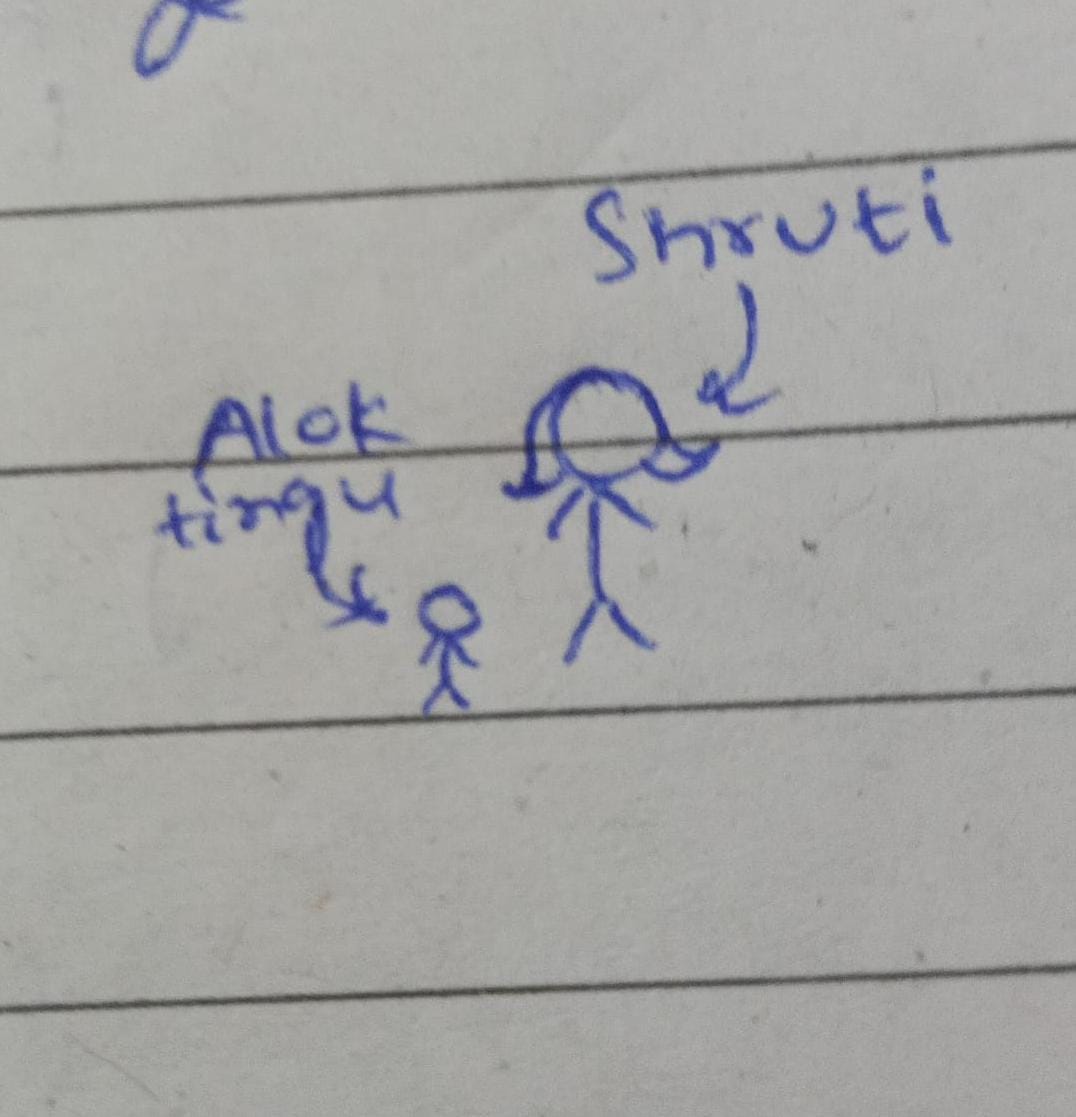 Shruti
Alok
tingu